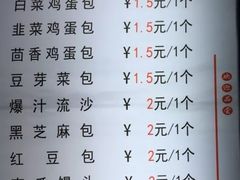 白菜鸡蛋包 ¥1.5元/1个
韭菜鸡蛋包 ¥1.5元/1个
茴香鸡蛋包 ¥1.5元/1个
豆芽菜包 ¥1.5元/1个
爆汁流沙 ¥2元/1个
黑芝麻包 ¥2元/1个
红豆包 ¥2元/1个